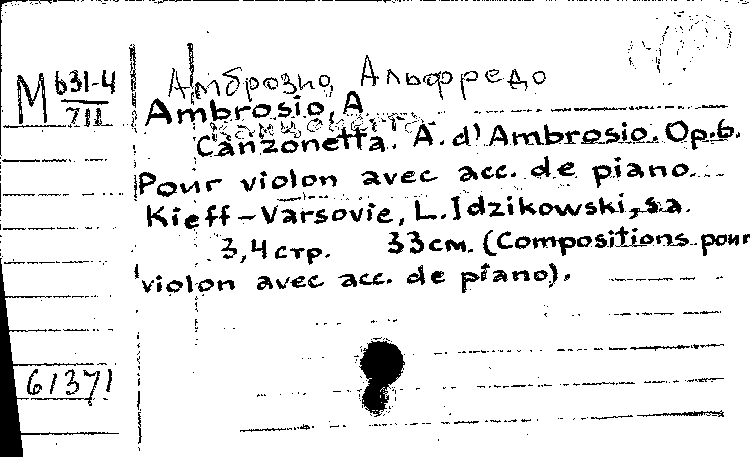 М 631-4
VII
Амброзио, Альфредо
Ambrosio, A
Canzonetta. A. d'Ambrosio. Op.6.
Pour violon avec acc. de piano.
Kieff-Varsovie, L. Idzikowski, s.a.
3,4 стр. 33 см. (Compositions pour
violon avec acc. de piano).
61371